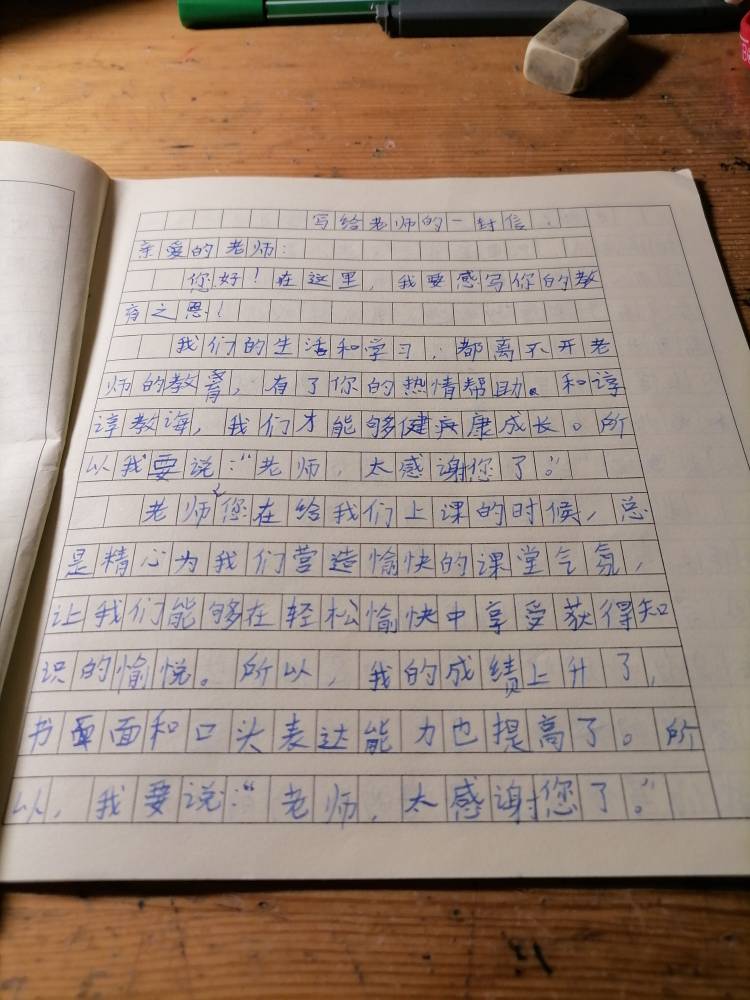 写给老师的一封信.
亲爱的老师:
您好!在这里,我要感写你的教
育之恩!
我们的生活和学习,都离不开老
师的教育,有了你的热情帮助。和谆
谆教诲,我们才能够健康成长。所
以我要说:"老师,太感谢您了。"
老师,您在给我们上课的时候,总
是精心为我们营造愉快的课堂气氛,
让我们能够在轻松愉快中享受获得知
识的愉悦。所以,我的成绩上升了,
书面面和口头表达能力也提高了。所
以,我要说:"老师,太感谢您了。"